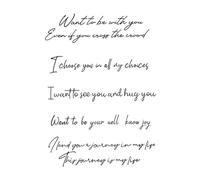 Want to be with you
Even if you cross the crowd
I choose you in all my choices
I want to see you and hug you
Want to be your well know joy
I find your journey in my life
This journey is my life